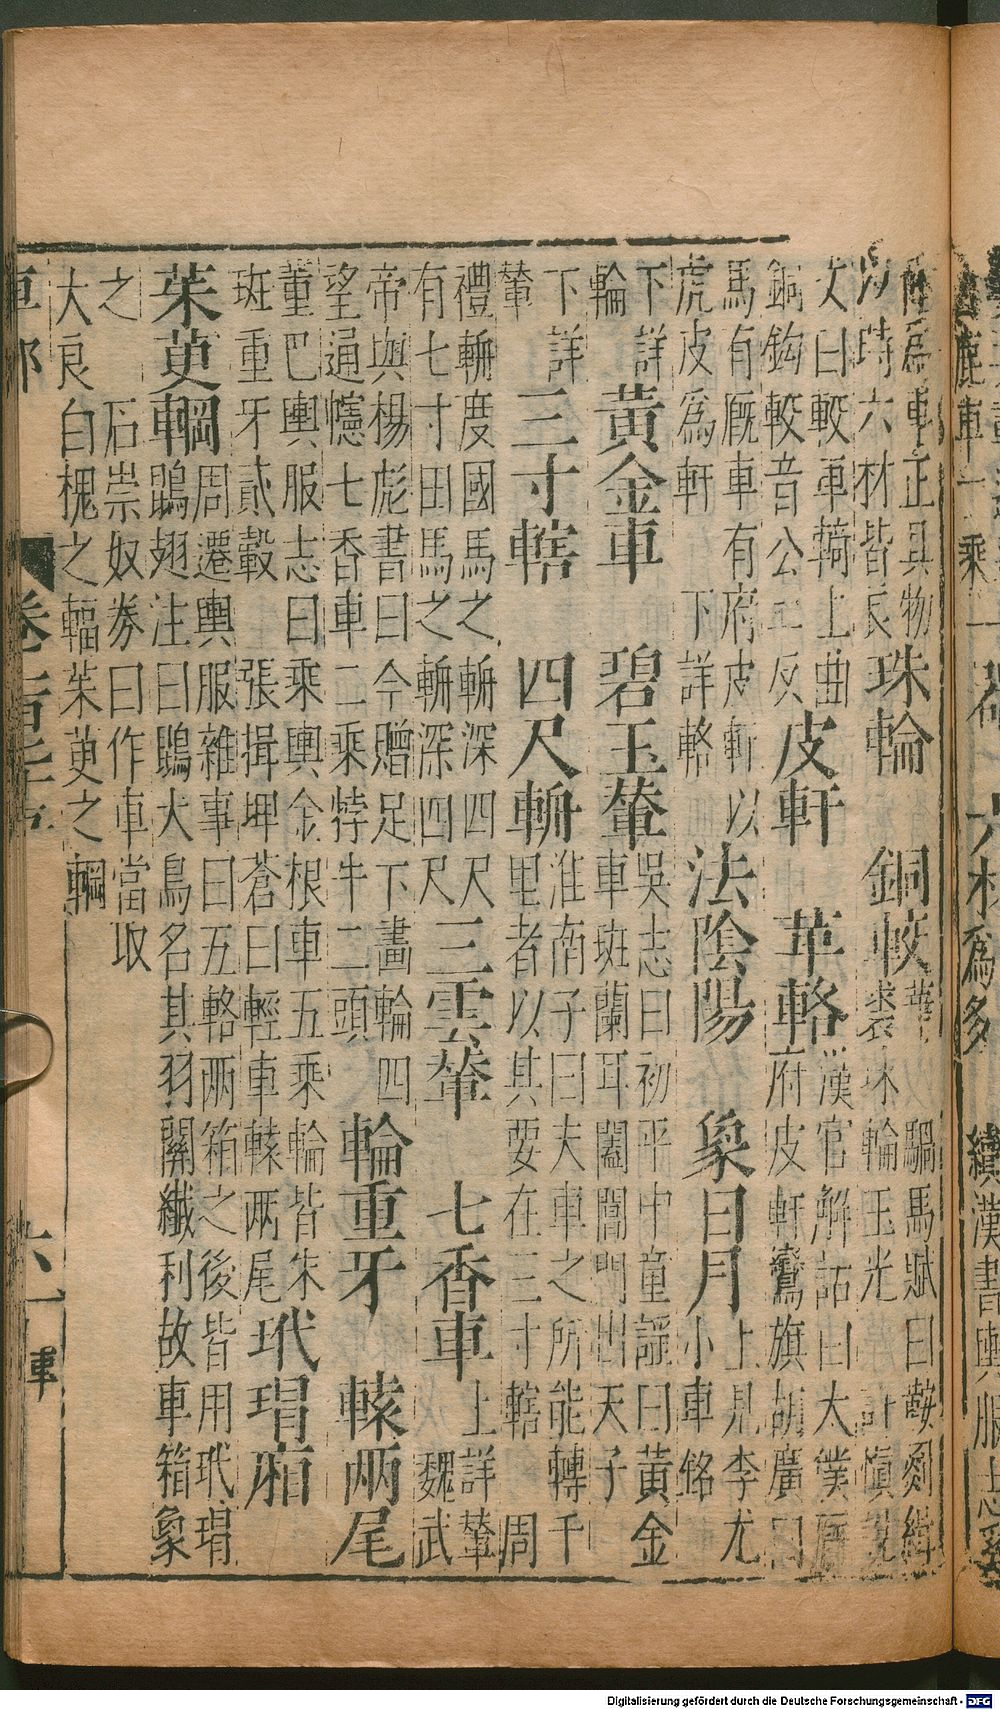 陰為車正具物
以時六材皆良
珠輪
銅較
騶馬賦曰
珠輪玉光
文曰較車輢上曲
銅鉤較音公工反
皮軒
革輅
漢官解詁曰大僕廐
府皮軒鸞旗胡廣曰
馬有廐車有府皮軒以
虎皮為軒 下詳輅
法陰陽
象日月
上見李尤
小車銘
下詳
輪
黃金車
碧玉輦
吳志曰初平中童謡曰黃金
車班蘭耳闓閶門出天子
下詳
輦
三寸轄
四尺輈
淮南子曰夫車之所能轉千
里者以其要在三寸轄 周
禮輈度國馬之輈深四尺
有七寸田馬之輈深四尺
三雲輦
七香車
上詳輦
魏武
帝與楊彪書曰今贈足下畫輪四
望通幰七香車二乘牸牛二頭
輪重牙
轅兩尾
董巴輿服志曰乘輿金根車五乘輪皆朱
班重牙貳轂 張揖埤蒼曰輕車轅兩尾
玳瑁廂
茱萸輞
周遷輿服雜事曰五輅兩箱之後皆用玳瑁
鵾翅注曰鵾大鳥名其羽關纖利故車箱象
之 石崇奴券曰作車當取
大良白槐之輻茱萸之輞
車部
六一 車
Digitalisierung gefördert durch die Deutsche Forschungsgemeinschaft - DFG